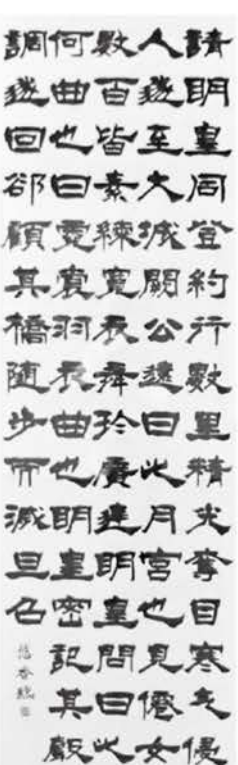 請明皇同登約行數里精光奪目寒气侵
人遂至大城闕公遠曰此月宮也見僊女
數百皆素練寬衣舞於廣廷明皇問曰此
何曲也曰霓裳羽衣曲也明皇密記其聲
調遂回郤顧其橋隨步而滅旦召